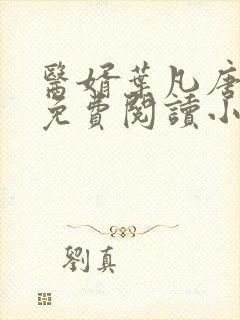 醫婿葉凡唐
免費閱讀小
劉真